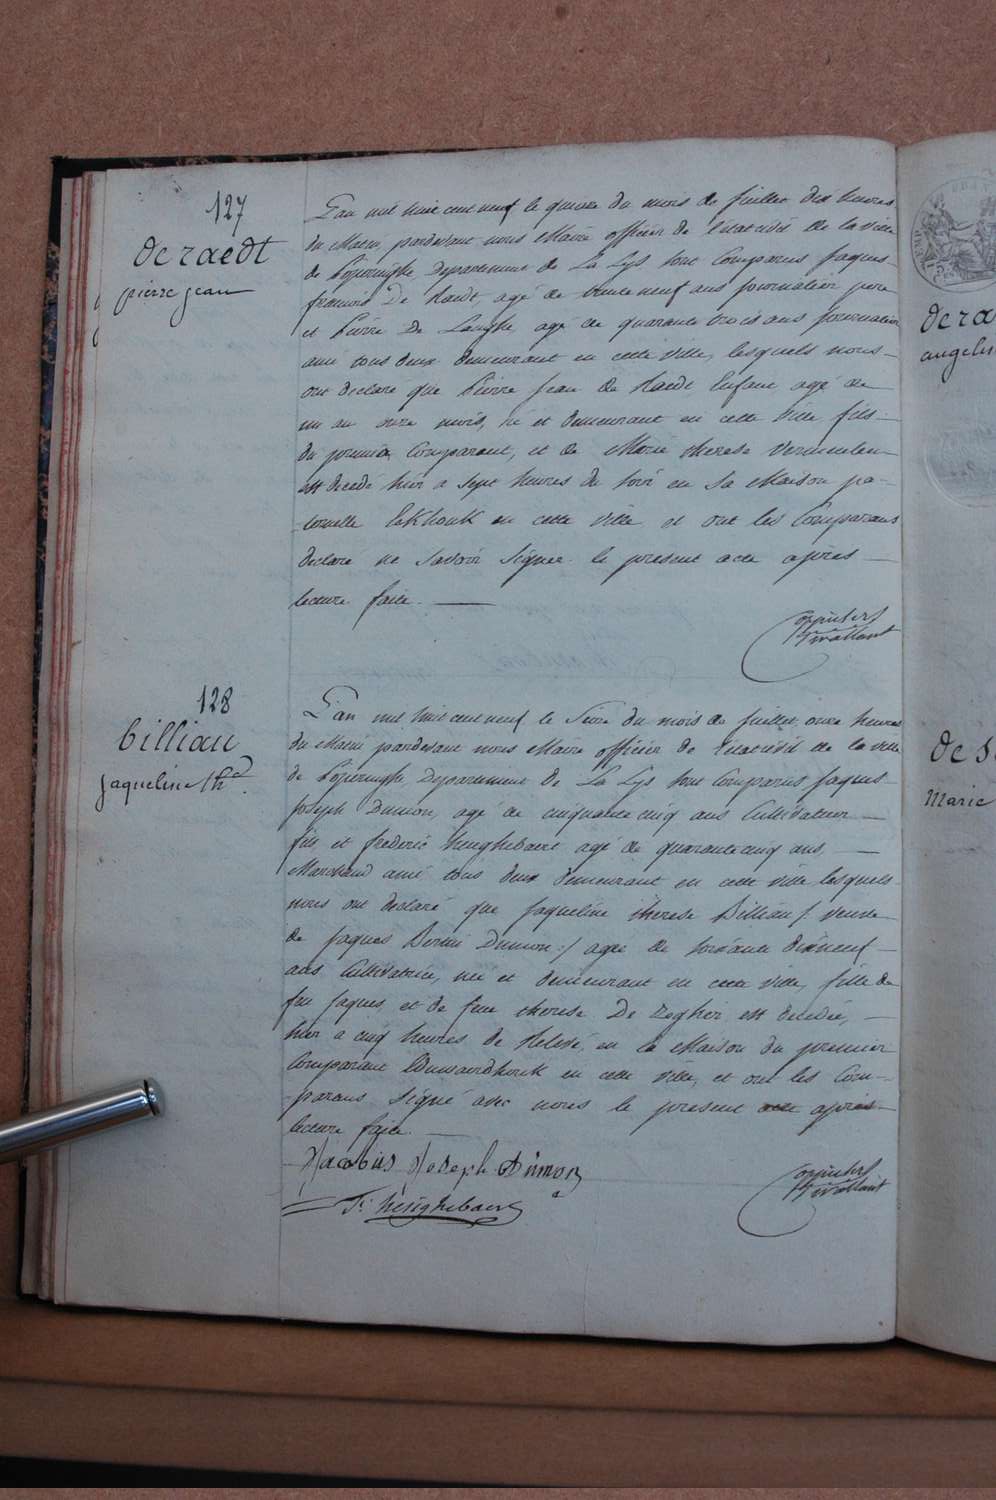 127
de raedt
pierre jean
L'an mil huit cent neuf le quinze du mois de juillet dix heures
du Matin, pardevant nous Maire officier de l'état civil de la ville
de Poperinghe, Departement de La Lys sont Comparus Jaques
francois De Raedt, agé de trente neuf ans journalier pere
et Pierre De Langhe agé de quarante trois ans journalier
ami tous deux demeurant en cette ville, lesquels nous
ont declaré que Pierre Jean De Raedt Enfant, agé de
un an onze mois, né et demeurant en cette ville fils
du premier Comparant, et de Marie therese Vermeulen
est decedé hier a sept heures du soir en Sa Maison pa-
ternelle Eekhouk en cette ville et ont les Comparans
declaré ne savoir signer le present acte apres
lecture faite.
128
billiau
jaqueline th.
L'an mil huit cent neuf le Seize du mois de juillet, onze heures
du Matin pardevant nous Maire officier de l'état civil de la ville
de Poperinghe Departement de La Lys sont Comparus Jaques
Joseph Dumon, agé de cinquante cinq ans Cultivateur
fils, et frederic heughebaert agé de quarante cinq ans,
Marchand ami tous deux demeurant en cette ville lesquels
nous ont declaré que Jaqueline therese Billiau /: veuve
de Jaques Dumon :/ agée de soixante dix neuf
ans Cultivatrice, née et demeurant en cette ville, fille de
feu Jaques, et de feue therese De Zegher est decedée,
hier a cinq heures de Relevé, en la Maison du premier
Comparant en cette ville, et ont les Com-
parans signé avec nous le present acte apres
lecture faite.
Jacobus Joseph Dumon
F: heughebaert
de ra
angelin
de s
Marie